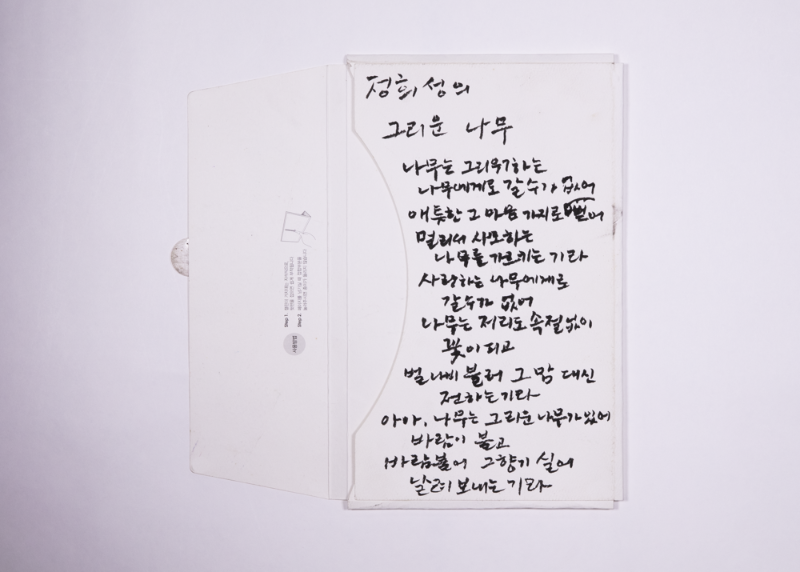 정희성의
그리운 나무
나무는 그리워하는
나무에게로 갈 수가 없어
애틋한 그 마음 가지로 벋어
멀리서 사모하는
나무를 가르키는 기라
사랑하는 나무에게로
갈 수가 없어
나무는 저리도 속절없이
꽃이 피고
벌 나비 불러 그 맘 대신
전하는 기라
아아, 나무는 그리운 나무가 있어
바람이 불고
바람 불어 그 향기 실어
날려 보내는 기라
Step 1.
Step 2.